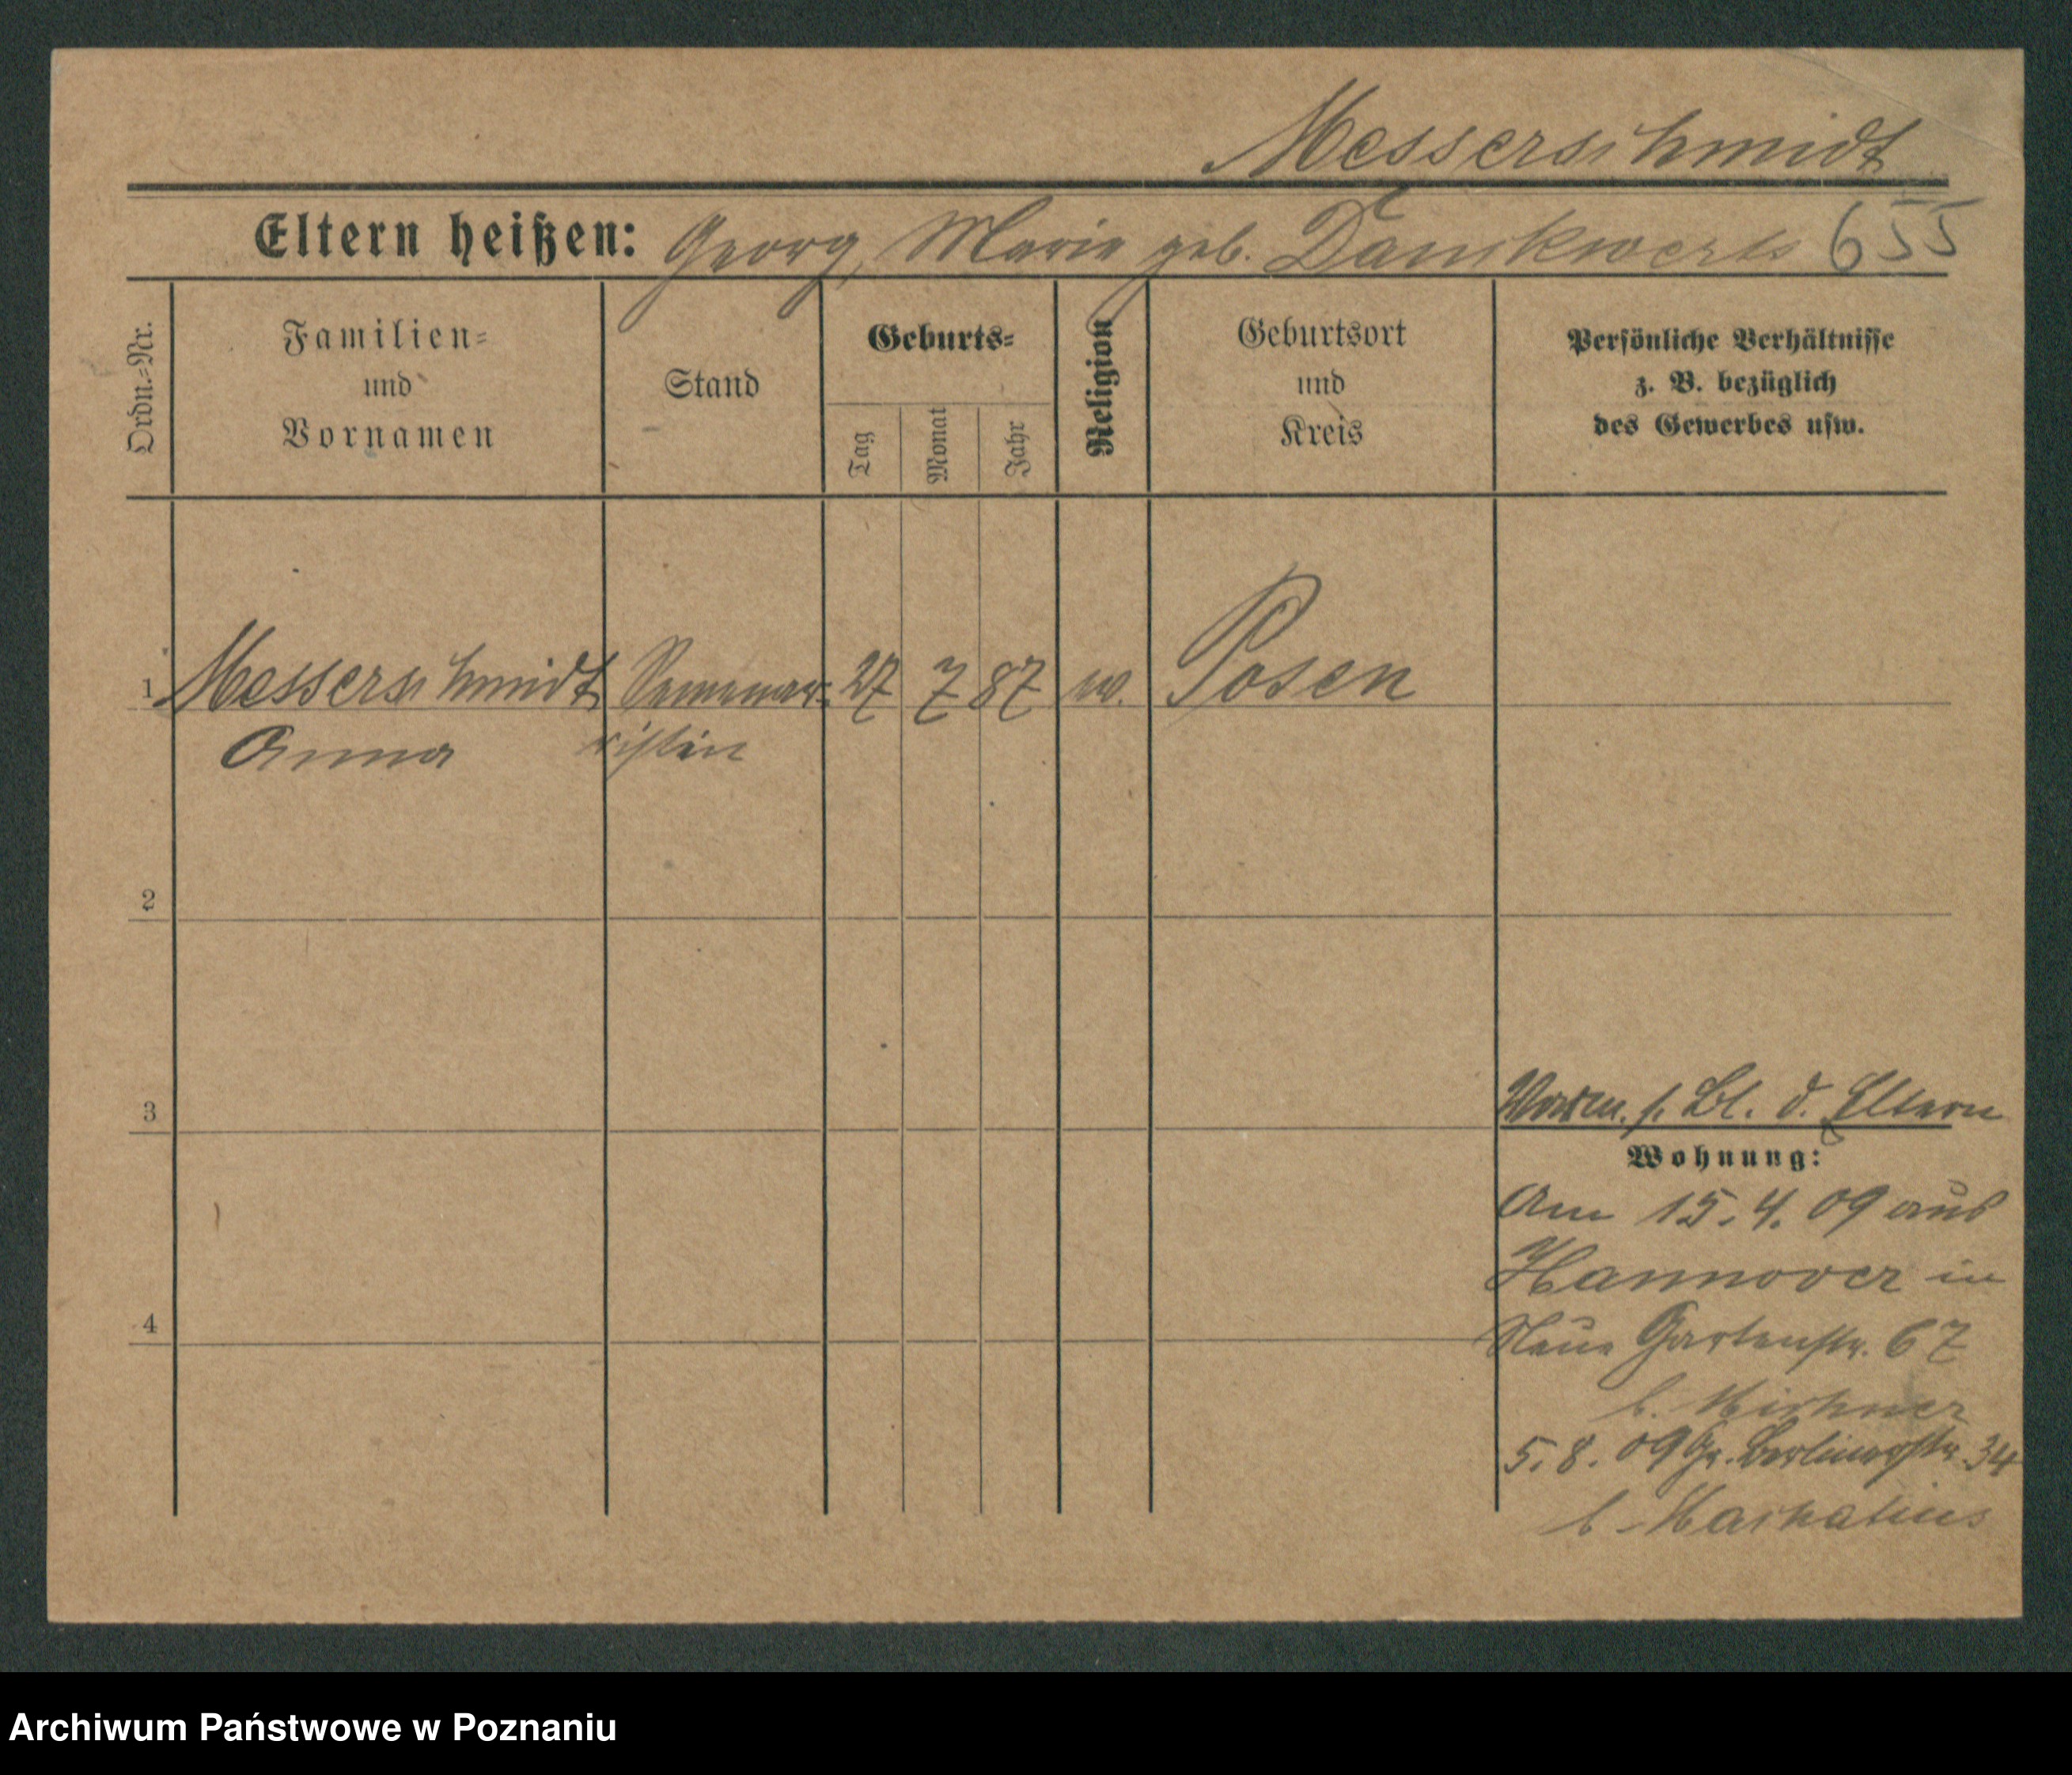 Messerschmidt
Eltern heißen: Georg, Marie geb. Dankwerts 655
Ordn.=Nr.
Familien=
und
Vornamen
Stand
Geburts=
Tag
Monat
Jahr
Religion
Geburtsort
und
Kreis
Persönliche Verhältnisse
z. B. bezüglich
des Gewerbes usw.
1 Messerschmidt Seminar= 27 7 87 ev. Posen
Anna ristin
2
3
s. Bl. d. Eltern
Wohnung:
Am 15.4.09 aus
Hannover in
4
Neue Gartenstr. 67
b. Kirchner
5.8.09 Gr. Berlinerstr. 34
b.
Archiwum Państwowe w Poznaniu